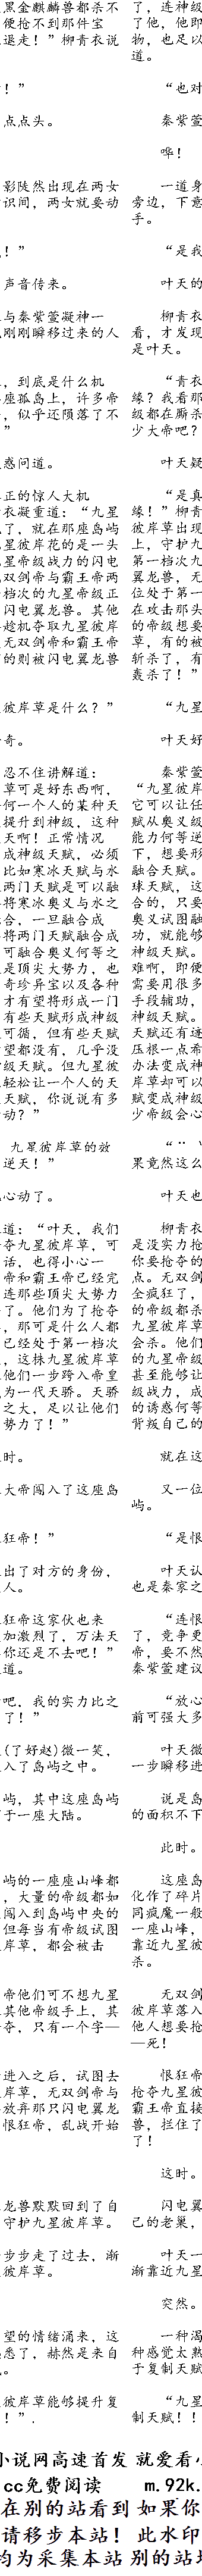 黑金麒麟兽都杀不
便抢不到那件宝
退走！”柳青衣说
！”
点点头。
影陡然出现在两女
识间，两女就要动
！”
声音传来。
与秦紫萱凝神一
刚刚瞬移过来的人
，到底是什么机
座孤岛上，许多帝
，似乎还陨落了不
”
惑问道。
正的惊人大机
衣凝重道：“九星
了，就在那座岛屿
星彼岸花的是一头
星帝级战力的闪电
双剑帝与霸王帝两
档次的九星帝级正
闪电翼龙兽。其他
趁机夺取九星彼岸
无双剑帝和霸王帝
的则被闪电翼龙兽
彼岸草是什么？”
奇。
忍不住讲解道：
草可是好东西啊，
何一个人的某种天
提升到神级，这种
天啊！正常情况
成神级天赋，必须
比如寒冰天赋与水
两门天赋是可以融
将寒冰奥义与水之
合，一旦融合成
将两门天赋融合成
可融合奥义何等之
是顶尖大势力，也
奇珍异宝以及各种
才有望将形成一门
有些天赋形成神级
可循，但有些天赋
望都没有，几乎没
级天赋。但九星彼
轻松让一个人的天
天赋，你说说有多
动？”
九星彼岸草的效
逆天！”
心动了。
道：“叶天，我们
夺九星彼岸草，可
话，也得小心一
帝和霸王帝已经完
连那些顶尖大势力
了。他们为了抢夺
，那可是什么人都
已经处于第一档次
，这株九星彼岸草
他们一步跨入帝皇
为一代天骄。天骄
之大，足以让他们
势力了！”
时。
大帝闯入了这座岛
狂帝！”
出了对方的身份，
人。
狂帝这家伙也来
加激烈了，万法天
你还是不去吧！”
道。
吧，我的实力比之
了！”
(了好赵)微一笑，
入了岛屿之中。
屿，其中这座岛屿
于一座大陆。
屿的一座座山峰都
，大量的帝级都如
闯入到岛屿中央的
但每当有帝级试图
岸草，都会被击
帝他们可不想九星
其他帝级手上，其
夺，只有一个字—
进入之后，试图去
岸草，无双剑帝与
放弃那只闪电翼龙
恨狂帝，乱战开始
龙兽默默回到了自
守护九星彼岸草。
步步走了过去，渐
彼岸草。
望的情绪涌来，这
悉了，赫然是来自
。
彼岸草能够提升复
！”.
小说网高速首发
cc免费阅读
在别的站看到
请移步本站！
均为采集本站
了，连神级
了他，他即
物，也足以
道。
“也对
秦紫萱
哗！
一道身
旁边，下意
手。
“是我
叶天的
柳青衣
看，才发现
是叶天。
“青衣
缘？我看那
级都在厮杀
少大帝吧？
叶天疑
“是真
缘！”柳青
彼岸草出现
上，守护九
第一档次九
翼龙兽，无
位处于第一
在攻击那头
的帝级想要
草，有的被
斩杀了，有
轰杀了！”
“九星
叶天好
秦紫萱
“九星彼岸
它可以让任
赋从奥义级
能力何等逆
下，想要形
融合天赋。
球天赋，这
合的，只要
奥义试图融
功，就能够
神级天赋。
难啊，即便
需要用很多
手段辅助，
神级天赋。
天赋还有迹
压根一点希
办法变成神
岸草却可以
赋变成神级
少帝级会心
果竟然这么
叶天也
柳青衣
是没实力抢
你要抢夺的
点。无双剑
全疯狂了，
的帝级都杀
九星彼岸草
会杀。他们
的九星帝级
甚至能够让
级战力，成
的诱惑何等
背叛自己的
就在这
又一位
屿。
“是恨
叶天认
也是秦家之
“连恨
了，竞争更
帝，要不然
秦紫萱建议
“放心
前可强大多
叶天微
一步瞬移进
说是岛
的面积不下
此时。
这座岛
化作了碎片
同疯魔一般
一座山峰，
靠近九星彼
杀。
无双剑
彼岸草落入
他人想要抢
—死！
恨狂帝
抢夺九星彼
霸王帝直接
兽，拦住了
了！
这时。
闪电翼
己的老巢，
叶天一
渐靠近九星
突然。
一种渴
种感觉太熟
于复制天赋
“九星
制天赋！！
就爱看小
m.92k.
如果你
此水印
别的站均